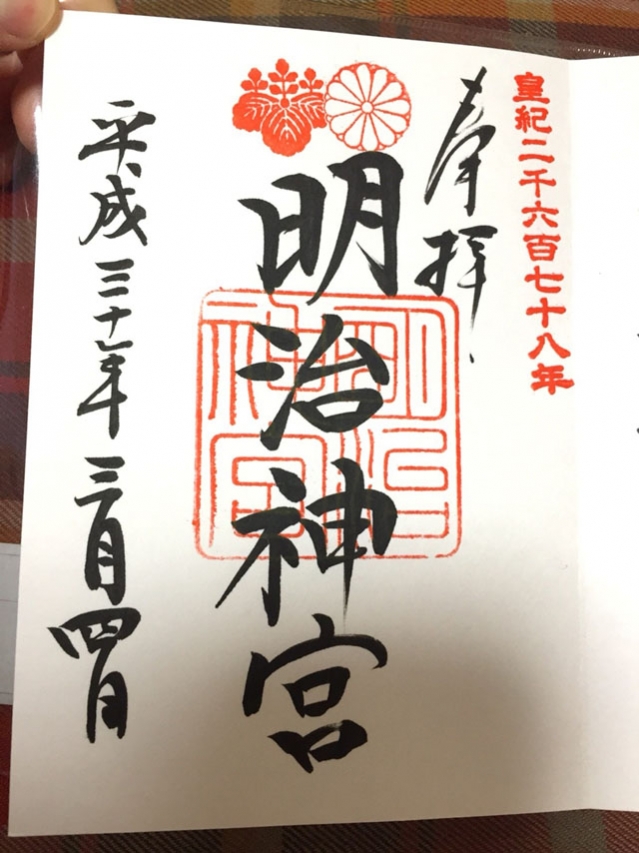 皇紀二千六百七十八年
奉拝
明治神宮
明治神宮
平成三十年三月四日